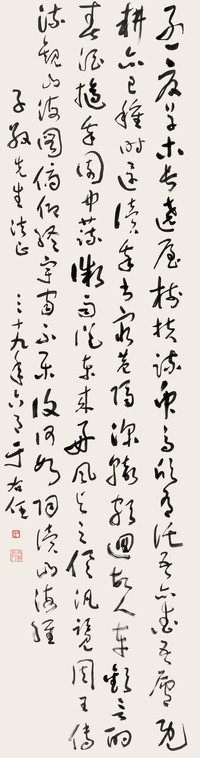 孟夏草木長遶屋樹扶疏眾鳥欣有託吾亦愛吾廬既
耕亦已種時還讀我書窮巷隔深轍頗迴故人車歡言酌
春酒摘我園中蔬微雨從東來好風與之俱汎覽周王傳
流觀山海圖俯仰終宇宙不樂復何如陶讀山海經
先生法正 三十九年六月 于右任